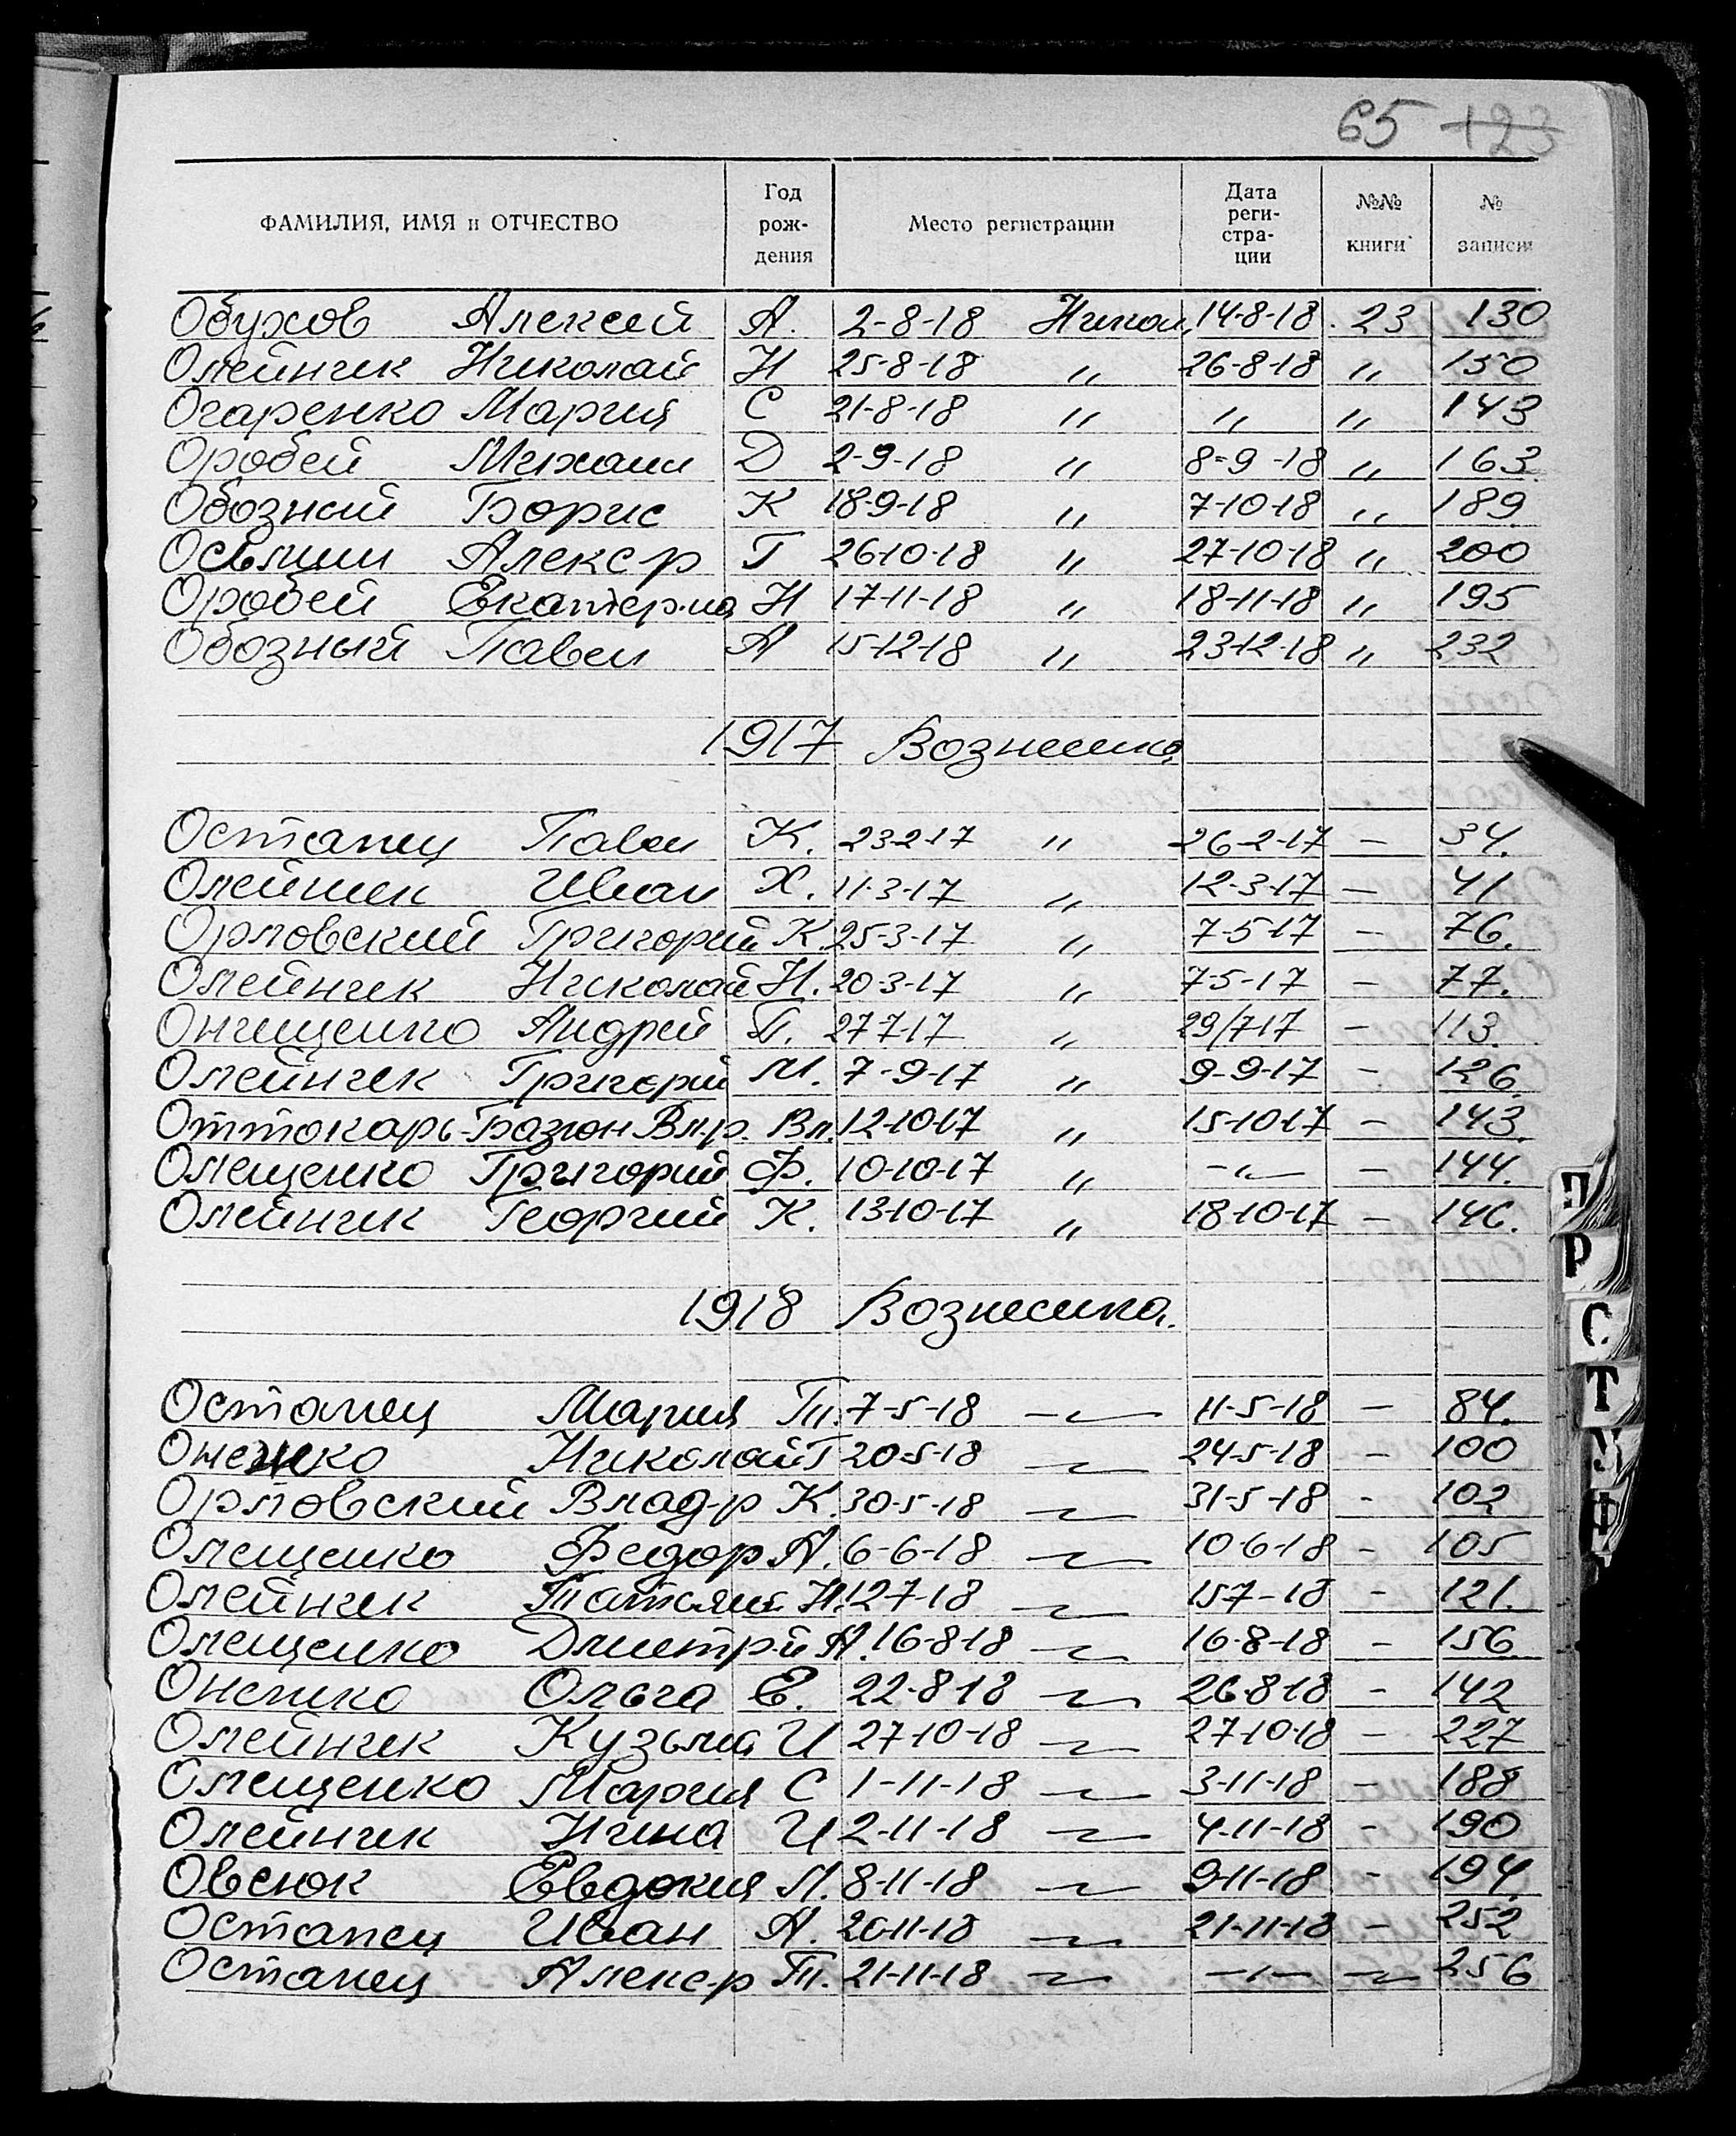 65 123
ФАМИЛИЯ, ИМЯ и ОТЧЕСТВО Год рождения Место регистрации Дата регистрации №№ книги № записи
Обухов Алексей А. 2-8-18 Никол. 14-8-18. 23 130
Олейник Николай Н 25-8-18 " 26-8-18 " 150
Огаренко Мария С 21-8-18 " " " 143
Оробей Михаил Д 2-9-18 " 8-9-18 " 163
Обозный Борис К 18-9-18 " 7-10-18 " 189
Осьмин Алекс-р Г 26-10-18 " 27-10-18 " 200
Оробей Екатер-на Н 17-11-18 " 18-11-18 " 195
Обозный Павел А 15-12-18 " 23-12-18 " 232
1917 Вознесенка
Остапец Павел К. 23-2-17 " 26-2-17 — 34.
Олейник Иван Х. 11-3-17 " 12-3-17 — 41
Орловский Григорий К. 25-3-17 " 7-5-17 — 76.
Олейник Николай Н. 20-3-17 " 7-5-17 — 77.
Онищенко Андрей П. 27-7-17 " 29/7-17 — 113.
Олейник Григорий М. 7-9-17 " 9-9-17 - 126.
Оттокарь-Базюн Вл-р. Вл. 12-10-17 " 15-10-17 — 143.
Олещенко Григорий Ф. 10-10-17 " -"- — 144.
Олейник Георгий К. 13-10-17 " 18-10-17 — 146.
1918 Вознесенка.
Остапец Мария Т. 7-5-18 -"- 11-5-18 — 84.
Николай Г 20-5-18 -"- 24-5-18 - 100
Орловский Влад-р К. 30-5-18 -"- 31-5-18 - 102
Олещенко Федор А. 6-6-18 -"- 10-6-18 - 105
Олейник Татьяна Н. 12-7-18 -"- 15-7-18 - 121.
Олещенко Дмитр-й А. 16-8-18 -"- 16-8-18 - 156
Оненко Ольга Е. 22-8-18 -"- 26-8-18 - 142
Олейник Кузьма И 27-10-18 -"- 27-10-18 — 227
Олещенко Мария С 1-11-18 -"- 3-11-18 — 188
Олейник Нина И 2-11-18 -"- 4-11-18 - 190
Овсюк Евдокия Л. 8-11-18 -"- 9-11-18 - 194.
Остапец Иван А. 20-11-18 -"- 21-11-18 — 252
Остапец Алекс-р Т. 21-11-18 -"- -"- -"- 256
П
Р
С
Т
У
Ф